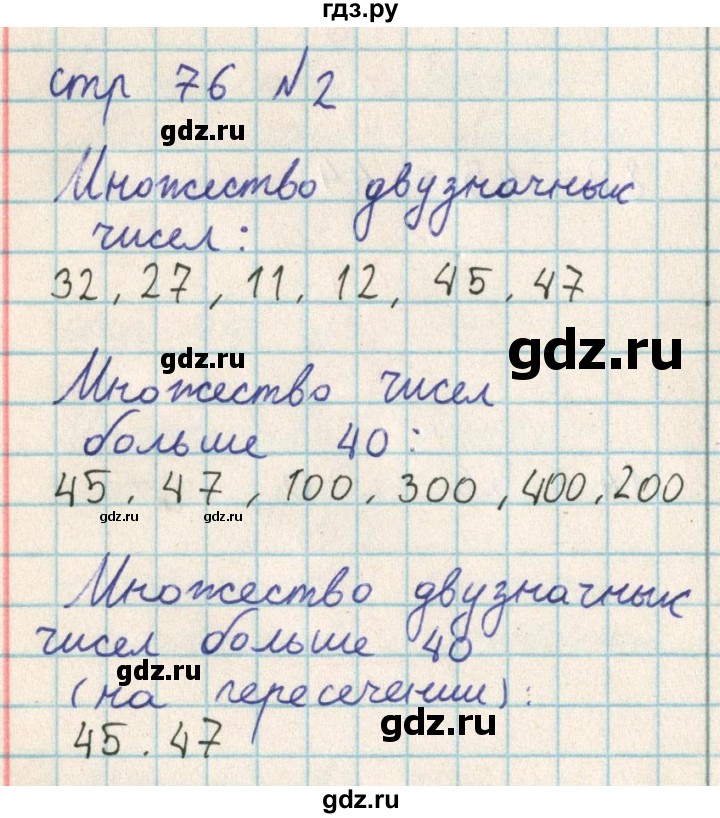 гдз.ру
стр 76 №2
gdz.ru
Множество двузначных
чисел:
32, 27, 11, 12, 45, 47
gdz.ru
gdz.ru
Множество чисел
больше 40:
45, 47, 100, 300, 400, 200
gdz.ru gdz.ru
Множество двузначных
чисел больше 40
gdz.ru
(на пересечении):
gdz.ru
45. 47
gdz.ru